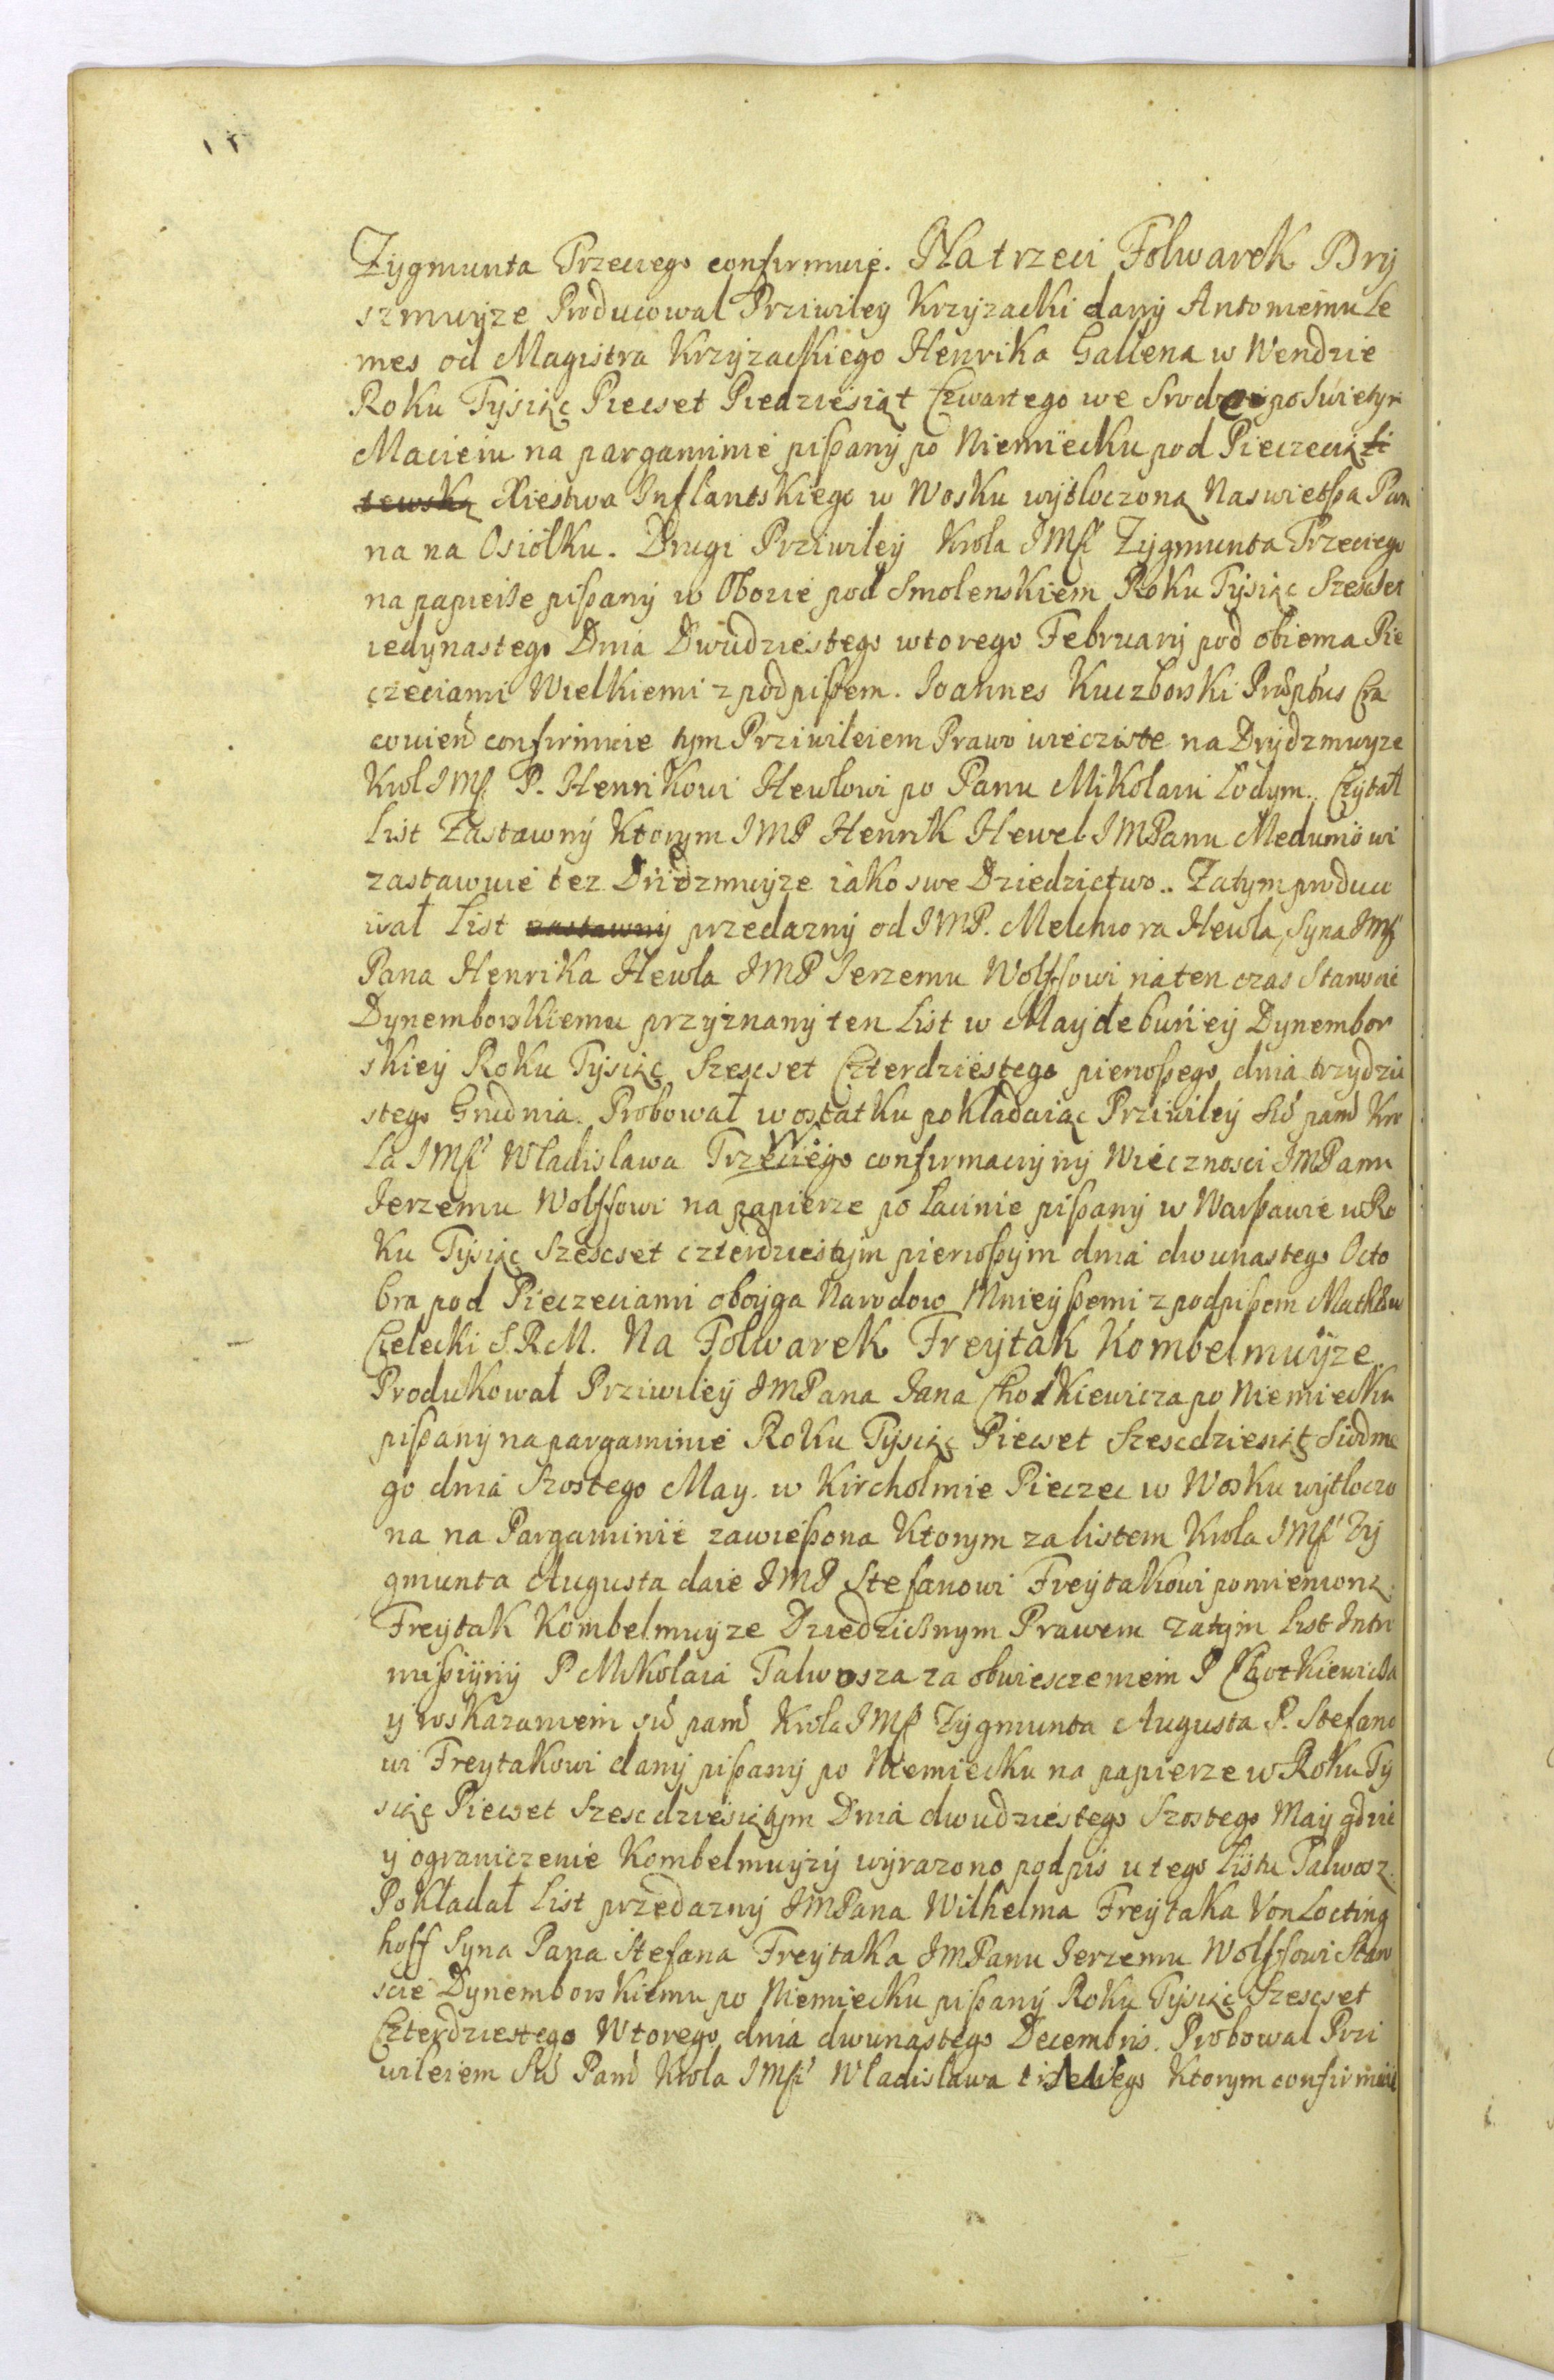 Zygmunta Trzeciego confirmuie. Na trzeci Folwarek Dry
szmuyze Producował Prziwiley Krzyzacki dany Antoniemu Le
mes od Magistra Krzyzackiego Henrika Gallena w Wendzie
Roku Tysiąc Piecset Piedziesiąt Czwartego we Srode po Swietym
Macieiu na pargaminie pißany po Niemiecku pod Pieczecią Li
tewską Xiestwa Inflantskiego w Wosku wytłoczoną Naswietßa Pan
na na Osiołku. Drugi Prziwiley Krola JMſci Zygmunta Trzeciego
na papierße pißany w Obozie pod Smolenskiem Roku Tysiąc Szescset
iedynastego Dnia Dwudziestego wtorego Februarÿ pod obiema Pie
czeciami Wielkiemi z podpißem. Joannes Kuczborski Præptus Cra
coviens confirmuie tym Prziwileiem Prawo wiecziste na Drydzmuyze
Krol JMſ P. Henrikowi Hewłowi po Panu Mikołaiu Lodym. Czytał
List Zastawny Ktorym JMP Henrik Hewel JMPanu Meduniowi
zastawuie tez Dridzmuyze iako swe Dziedzictwo.. Zatym produco
wał List zastawny przedazny od JMP. Melchiora Hewła, Syna JMſci
Pana Henrika Hewła JMP Jerzemu Wolffowi na ten czas Staroscie
Dynemborskiemu przyznany ten List w Maydeburiey Dynembor
skiey Roku Tysiąc Szescset Czterdziestego pierwßego dnia trzydzie
stego Grudnia. Probował w ostatku pokładaiąc Prziwiley Sw pam Kro
la JMſci Władisława Trzeciego confirmacyiny Wiecznosci JMPanu
Jerzemu Wolffowi na papierze po Łacinie pißany w Warßawie w Ro
ku Tysiąc Szescset czterdziestym pierwßym dnia dwunastego Octo
bra pod Pieczeciami oboyga Narodow Mnieyßemi z podpißem
Czelecki S.R.M. Na Folwarek Freytak Kombelmuyze
Produkował Prziwiley JMPana Jana Chodkiewicza po Niemiecku
pißany na pargaminie Roku Tysiąc Piecset Szescdziesiąt Siodme
go dnia Szostego May. w Kircholmie Pieczec w Wosku wytłoczo
na na Pargaminie zawießona Ktorym za listem Krola JMſci Zy
gmunta Augusta daie JMP Stefanowi Freytakowi pomienioną
Freytak Kombelmuyze Dziedzicznym Prawem zatym List Intro
mißiyny P Mikołaia Talwosza za obwiesczeniem P Chotkiewicza
y wskazaniem sw pam Krola JMſci Zygmunta Augusta P. Stefano
wi Freytakowi dany pißany po Niemiecku na papierze w Roku Ty
siąc Piecset Szescdziesiątym Dnia dwudziestego Szostego May gdzie
y ograniczenie Kombelmuyzy wyrazono podpis u tego Listu Talwosz.
Pokładał List przedazny JMPana Wilhelma Freytaka Von Locting
hoff Syna Pana Stefana Freytaka JMPanu Jerzemu Wolffowi Staro
scie Dynemborskiemu po Niemiecku pißany Roku Tysiąc Szescset
Czterdziestego Wtorego dnia dwunastego Decembris. Probował Pri
wileiem Sw Pam Krola JMſci Władisława trzeciego Ktorym confirmuie